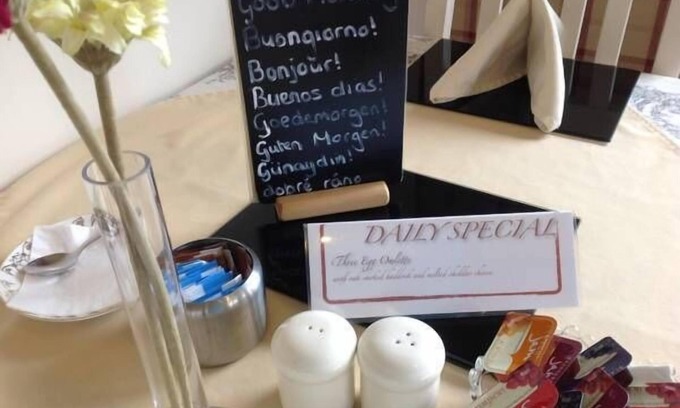 Good Morning
Buongiorno!
Bonjour!
Buenos dias!
Goedemorgen!
Guten Morgen!
Günaydin!
dobré ráno
DAILY SPECIAL
Three Egg Omlette
with oak smoked haddock and melted cheddar cheese